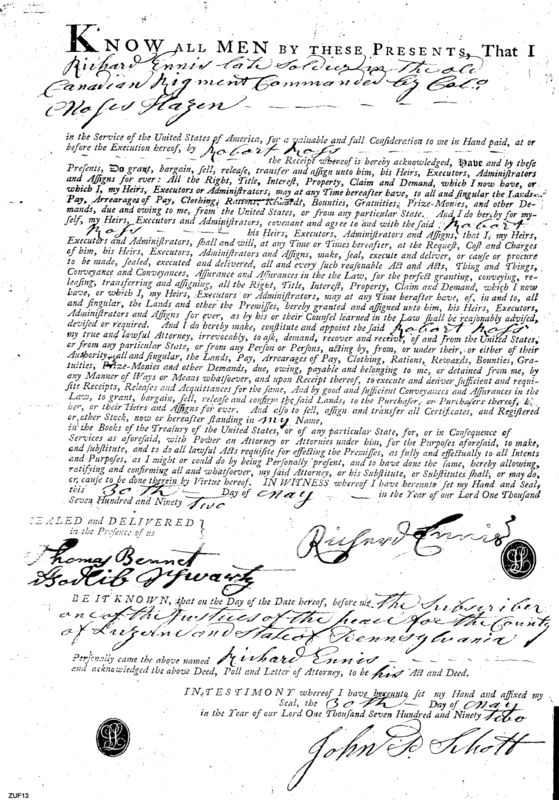 KNOW ALL MEN BY THESE PRESENTS, That I
Richard Ennis late Soldier in the old
Canadian Rigment Commanded by Colo.
Moses Hazen
in the Service of the United States of America, for a valuable and full Consideration to me in Hand paid, at or
before the Execution hereof, by Robart Ross
the Receipt whereof is hereby acknowledged, Have and by these
Presents, Do grant, bargain, sell, release, transfer and assign unto him, his Heirs, Executors, Administrators
and Assigns for ever: All the Right, Title, Interest, Property, Claim and Demand, which I now have, or
which I, my Heirs, Executors or Administrators, may at any Time hereafter have, to all and singular the Lands,
Pay, Arrearages of Pay, Clothing, Rations, Rewards, Bounties, Gratuities, Prize-Monies, and other De-
mands, due and owing to me, from the United States, or from any particular State. And I do hereby for my-
self, my Heirs, Executors and Administrators, covenant and agree to and with the said Robart
Ross his Heirs, Executors, Administrators and Assigns, that I, my Heirs,
Executors and Administrators, shall and will, at any Time or Times hereafter, at the Request, Cost and Charges
of him, his Heirs, Executors, Administrators and Assigns, make, seal, execute and deliver, or cause or procure
to be made, sealed, executed and delivered, all and every such reasonable Act and Acts, Thing and Things,
Conveyance and Conveyances, Assurance and Assurances in the Law, for the perfect granting, conveying, re-
leasing, transferring and assigning, all the Right, Title, Interest, Property, Claim and Demand, which I now
have, or which I, my Heirs, Executors or Administrators, may at any Time hereafter have, of, in and to, all
and singular, the Lands and other the Premisses, hereby granted and assigned unto him, his Heirs, Executors,
Administrators and Assigns for ever, as by his or their Counsel learned in the Law shall be reasonably advised,
devised or required. And I do hereby make, constitute and appoint the said Robart Ross
my true and lawful Attorney, irrevocably, to ask, demand, recover and receive, of and from the United States,
or from any particular State, or from any Person or Persons, acting by, from, or under their, or either of their
Authority, all and singular, the Lands, Pay, Arrearages of Pay, Clothing, Rations, Rewards, Bounties, Gra-
tuities, Prize-Monies and other Demands, due, owing, payable and belonging to me, or detained from me, by
any Manner of Ways or Means whatsoever, and upon Receipt thereof, to execute and deliver sufficient and requi-
site Receipts, Releases and Acquittances for the same. And by good and sufficient Conveyances and Assurances in the
Law, to grant, bargain, sell, release and confirm the said Lands, to the Purchaser, or Purchasers thereof,
her, or their Heirs and Assigns for ever. And also to sell, assign and transfer all Certificates, and Registered
or other Stock, now or hereafter standing in my Name,
in the Books of the Treasury of the United States, or of any particular State, for, or in Consequence of
Services as aforesaid, with Power an Attorney or Attornies under him, for the Purposes aforesaid, to make,
and substitute, and to do all lawful Acts requisite for effecting the Premisses, as fully and effectually to all Intents
and Purposes, as I might or could do by being Personally present, and to have done the same, hereby allowing,
ratifying and confirming all and whatsoever, my said Attorney, or his Substitute, or Substitutes shall, or may do,
or cause to be done therein by Virtue hereof. IN WITNESS whereof I have hereunto set my Hand and Seal,
this 30th Day of May in the Year of our Lord One Thousand
Seven Hundred and Ninety Two
SEALED and DELIVERED
in the Presence of us
Richard Ennis
Thomas Bennet
Godlib Swartz
BE IT KNOWN, that on the Day of the Date hereof, before me the Subscriber
one of the Justices of the peace for the County
of Luzerne and State of Pennsylvania
Personally came the above named Richard Ennis
and acknowledged the above Deed, Poll and Letter of Attorney, to be his Act and Deed.
IN TESTIMONY whereof I have hereunto set my Hand and affixed my
Seal, the 30th Day of May
in the Year of our Lord One Thousand Seven Hundred and Ninety two
John P. Schott
ZUF13